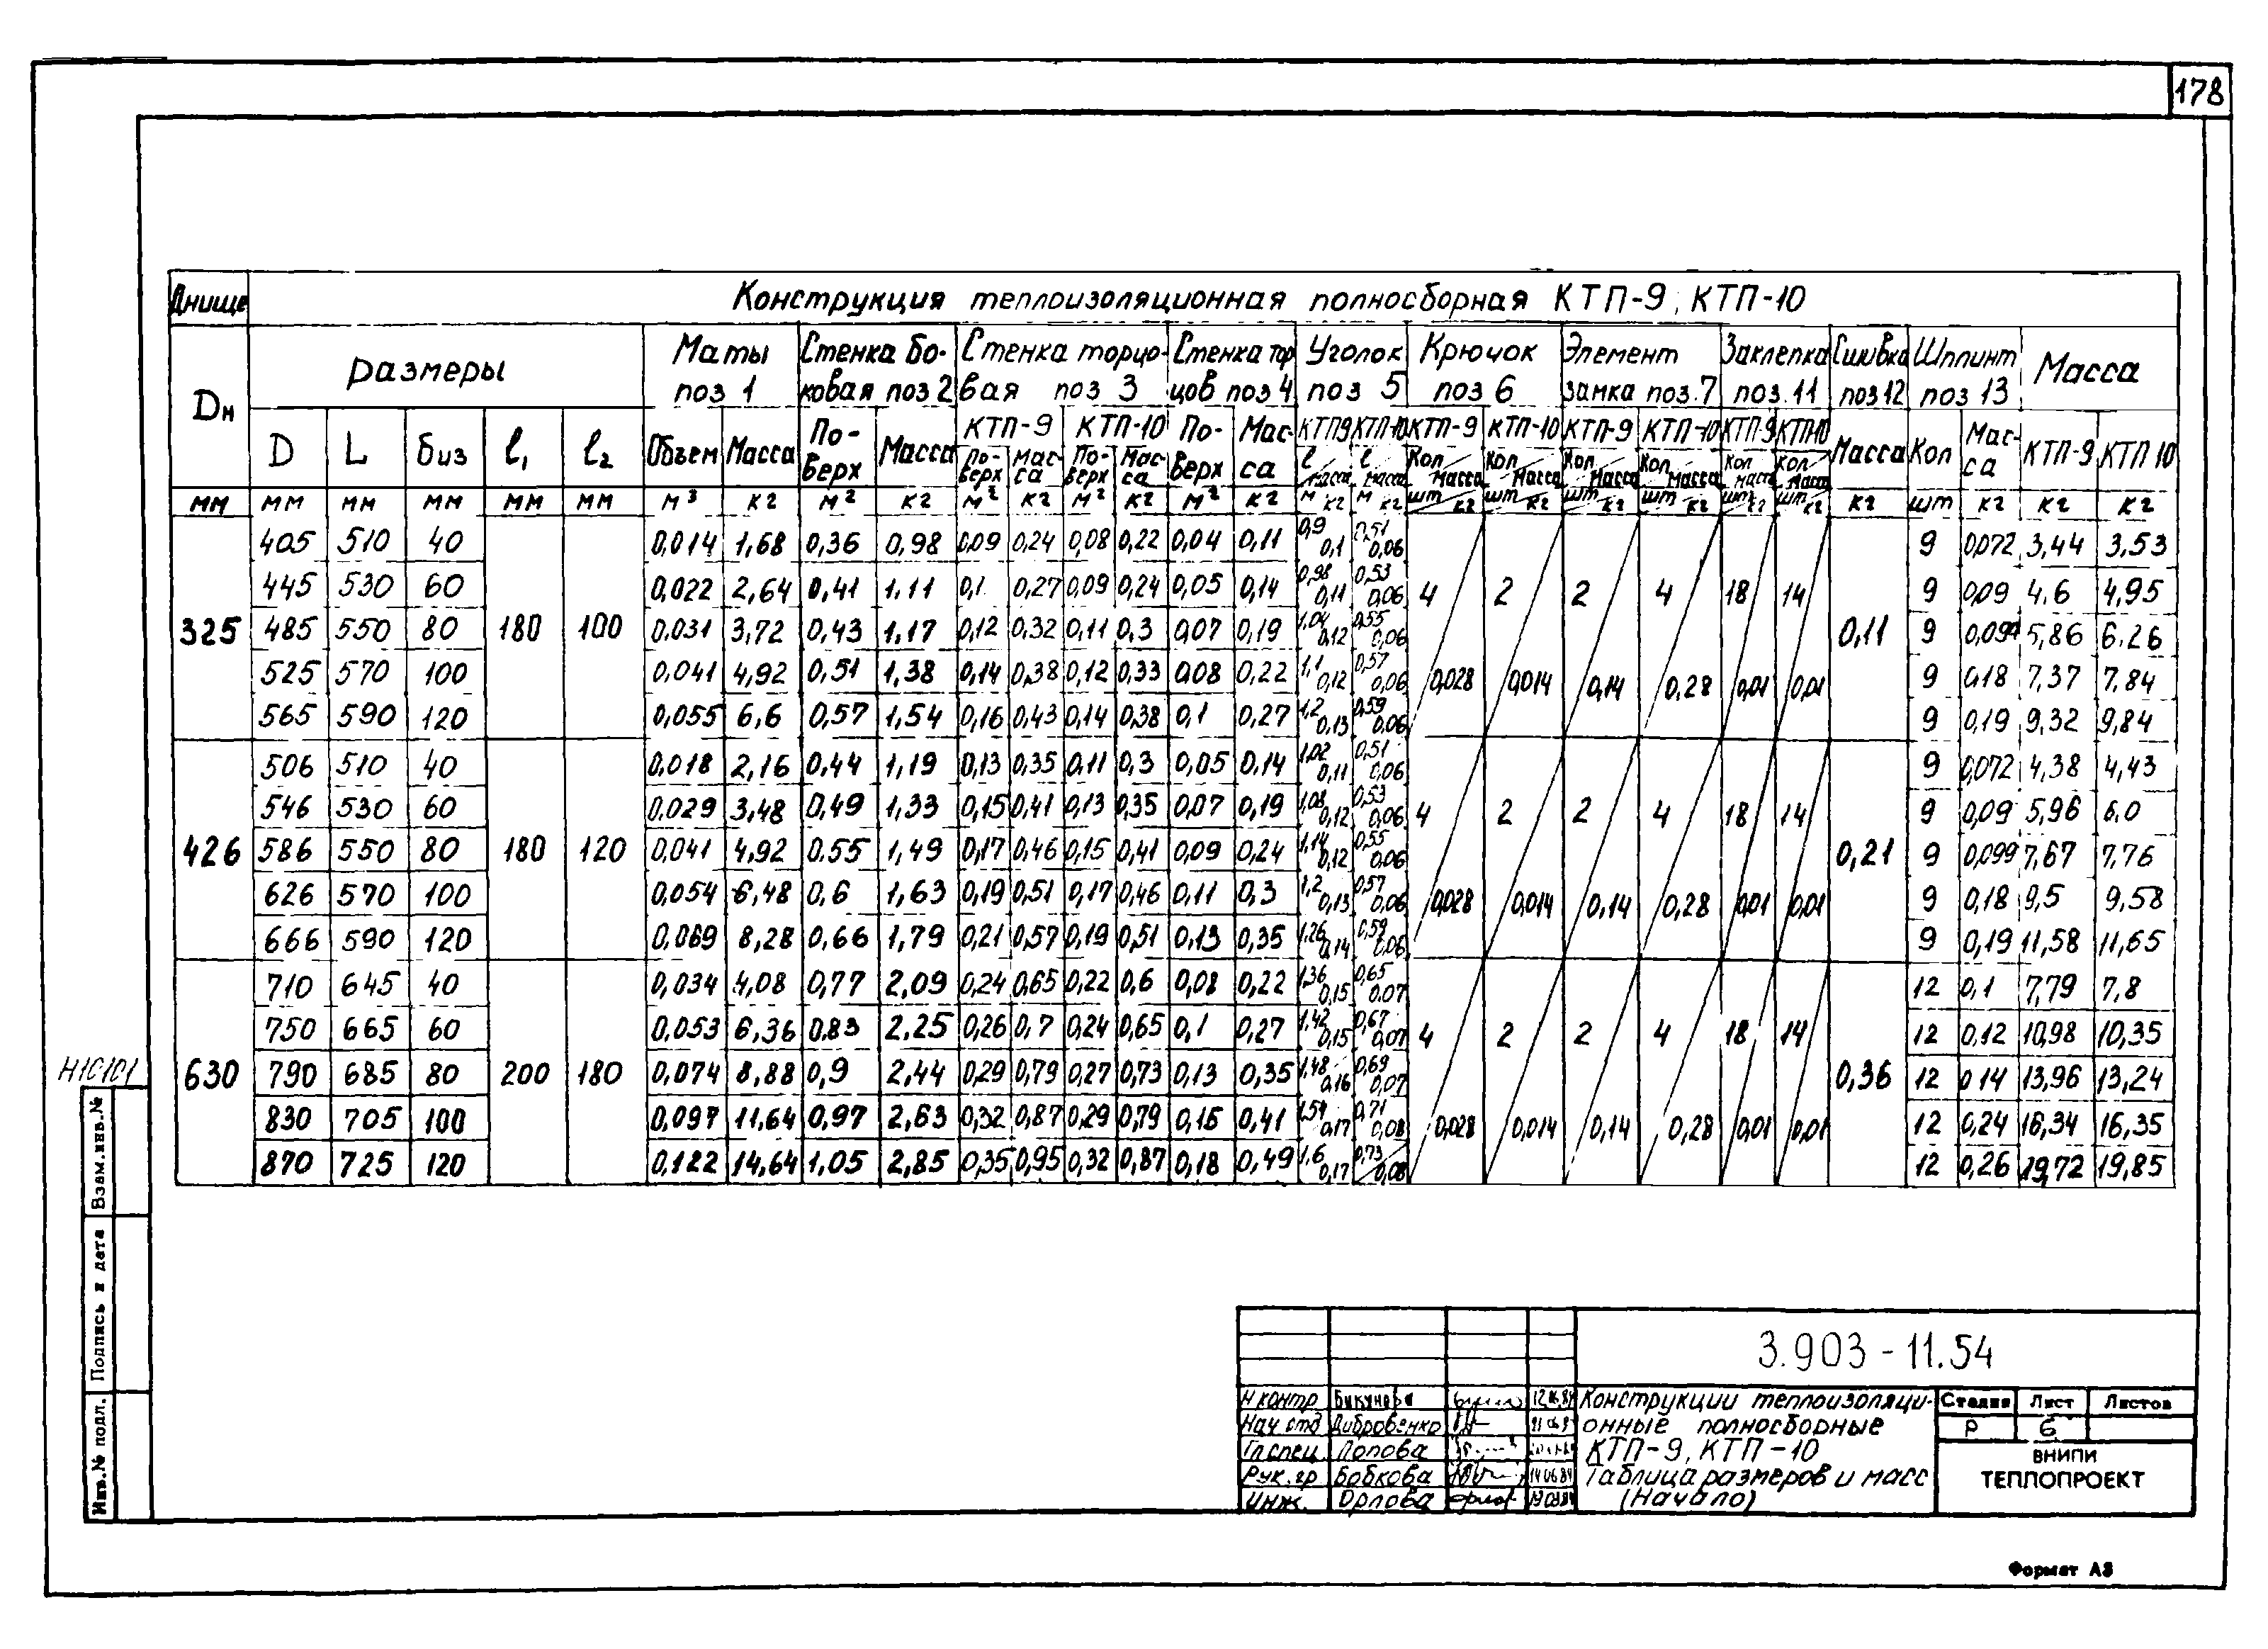 178
Днище
Конструкция теплоизоляционная полносборная КТП-9, КТП-10
Dн
размеры
Маты поз 1
Стенка боковая поз 2
Стенка торцовая поз 3
Стенка торцов поз 4
Уголок поз 5
Крючок поз 6
Элемент замка поз.7
Заклепка поз.11
Сшивка поз12
Шплинт поз 13
Масса
D L биз l1 l2 Объем Масса По-верх Масса КТП-9 КТП-10 По-верх Мас-са КТП9 КТП-10 КТП-9 КТП-10 КТП-9 КТП-10 КТП-9 КТП10 Масса Кол Мас-са КТП-9 КТП 10
По-верх Мас-са По-верх Мас-са l масса l масса Кол Масса Кол Масса Кол Масса Кол Масса Кол масса Кол Масса
мм мм мм мм мм мм м³ кг м² кг м² кг м² кг м² кг м кг м кг шт кг шт кг шт кг шт кг шт кг шт кг кг шт кг кг кг
405 510 40 0,014 1,68 0,36 0,98 0,09 0,24 0,08 0,22 0,04 0,11 0,9 0,1 0,51 0,06 9 0,072 3,44 3,53
445 530 60 0,022 2,64 0,41 1,11 0,1 0,27 0,09 0,24 0,05 0,14 0,98 0,11 0,53 0,06 4 2 2 4 18 14 9 0,09 4,6 4,95
325 485 550 80 180 100 0,031 3,72 0,43 1,17 0,12 0,32 0,11 0,3 0,07 0,19 1,04 0,12 0,55 0,06 0,11 9 5,86 6.26
525 570 100 0,041 4,92 0,51 1,38 0,14 0,38 0,12 0,33 0,08 0,22 1,1 0,12 0,57 0,06 0,028 0,014 0,14 0,28 0,01 0,01 9 0,18 7,37 7,84
565 590 120 0,055 6,6 0,57 1,54 0,16 0,43 0,14 0,38 0,1 0,27 1,2 0,13 0,59 0,06 9 0,19 9,32 9,84
506 510 40 0,018 2,16 0,44 1,19 0,13 0,35 0,11 0,3 0,05 0.14 1,02 0,11 0,51 0,06 9 0,072 4,38 4,43
546 530 60 0,029 3,48 0,49 1,33 0,15 0,41 0,13 0,35 0,07 0,19 1,08 0,12 0,53 0,06 4 2 2 4 18 14 9 0,09 5,96 6.0
426 586 550 80 180 120 0,041 4,92 0.55 1,49 0,17 0,46 0,15 0,41 0,09 0,24 1,14 0,12 0,55 0,06 0,21 9 0,099 7,67 7,76
626 570 100 0,054 6,48 0,6 1,63 0,19 0,51 0,17 0,46 0,11 0,3 1,2 0,13 0,57 0,06 0,028 0,014 0,14 0,28 0,01 0,01 9 0,18 9,5 9,58
666 590 120 0,069 8,28 0,66 1,79 0,21 0,57 0,19 0,51 0,13 0,35 1,26 0,14 0,59 0,06 9 0,19 11,58 11,65
710 645 40 0,034 4,08 0,77 2,09 0,24 0,65 0,22 0,6 0,08 0,22 1,36 0,15 0,65 0.07 12 0,1 7,79 7,8
750 665 60 0,053 6,36 0.83 2,25 0,26 0,7 0,24 0,65 0,1 0,27 1,42 0,15 0,67 0,07 4 2 2 4 18 14 12 0,12 10,98 10,35
630 790 685 80 200 180 0,074 8,88 0,9 2,44 0,29 0,79 0,27 0,73 0,13 0,35 1,48 0,16 0,69 0,07 0,36 12 0 14 13,96 13,24
830 705 100 0,097 11,64 0,97 2,63 0,32 0,87 0,29 0,79 0,15 0,41 1,54 0,17 0,71 0,08 0,028 0,014 0,14 0,28 0,01 0,01 12 0,24 16,34 16,35
870 725 120 0,122 14,64 1,05 2,85 0,35 0,95 0,32 0,87 0,18 0,49 1,6 0,17 0,73 0,08 12 0,26 19,72 19,85
Н10101
Взам.инв.№
Подпись и дата
Инв.№ подл.
3.903-11.54
Н контр
Нач отд Дибровенко
Гл спец Попова
Рук.гр Бобкова 14 06 84
Инж. Орлова
Конструкции теплоизоляци-
онные полносборные
КТП-9, КТП-10
Таблица размеров и масс
(Начало)
Стадия Лист Листов
Р 6
ВНИПИ
ТЕПЛОПРОЕКТ
Формат А3